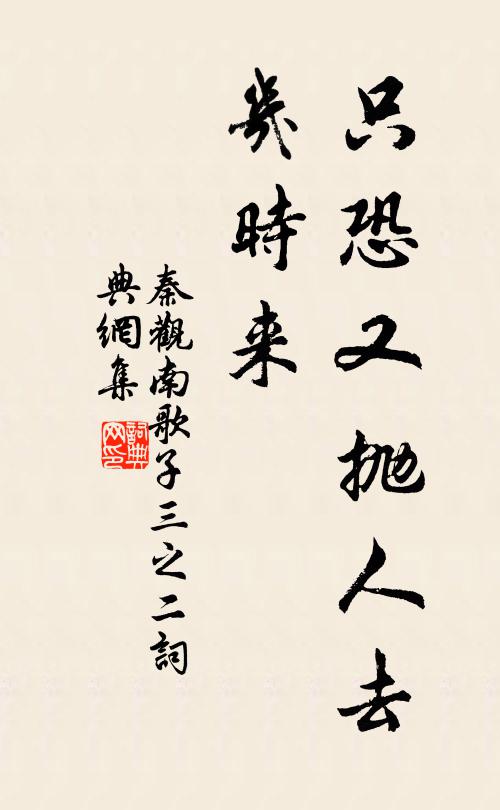 只恐又抛人去
幾時来
秦觀南歌子三之二詞
典網集
詞典
网印